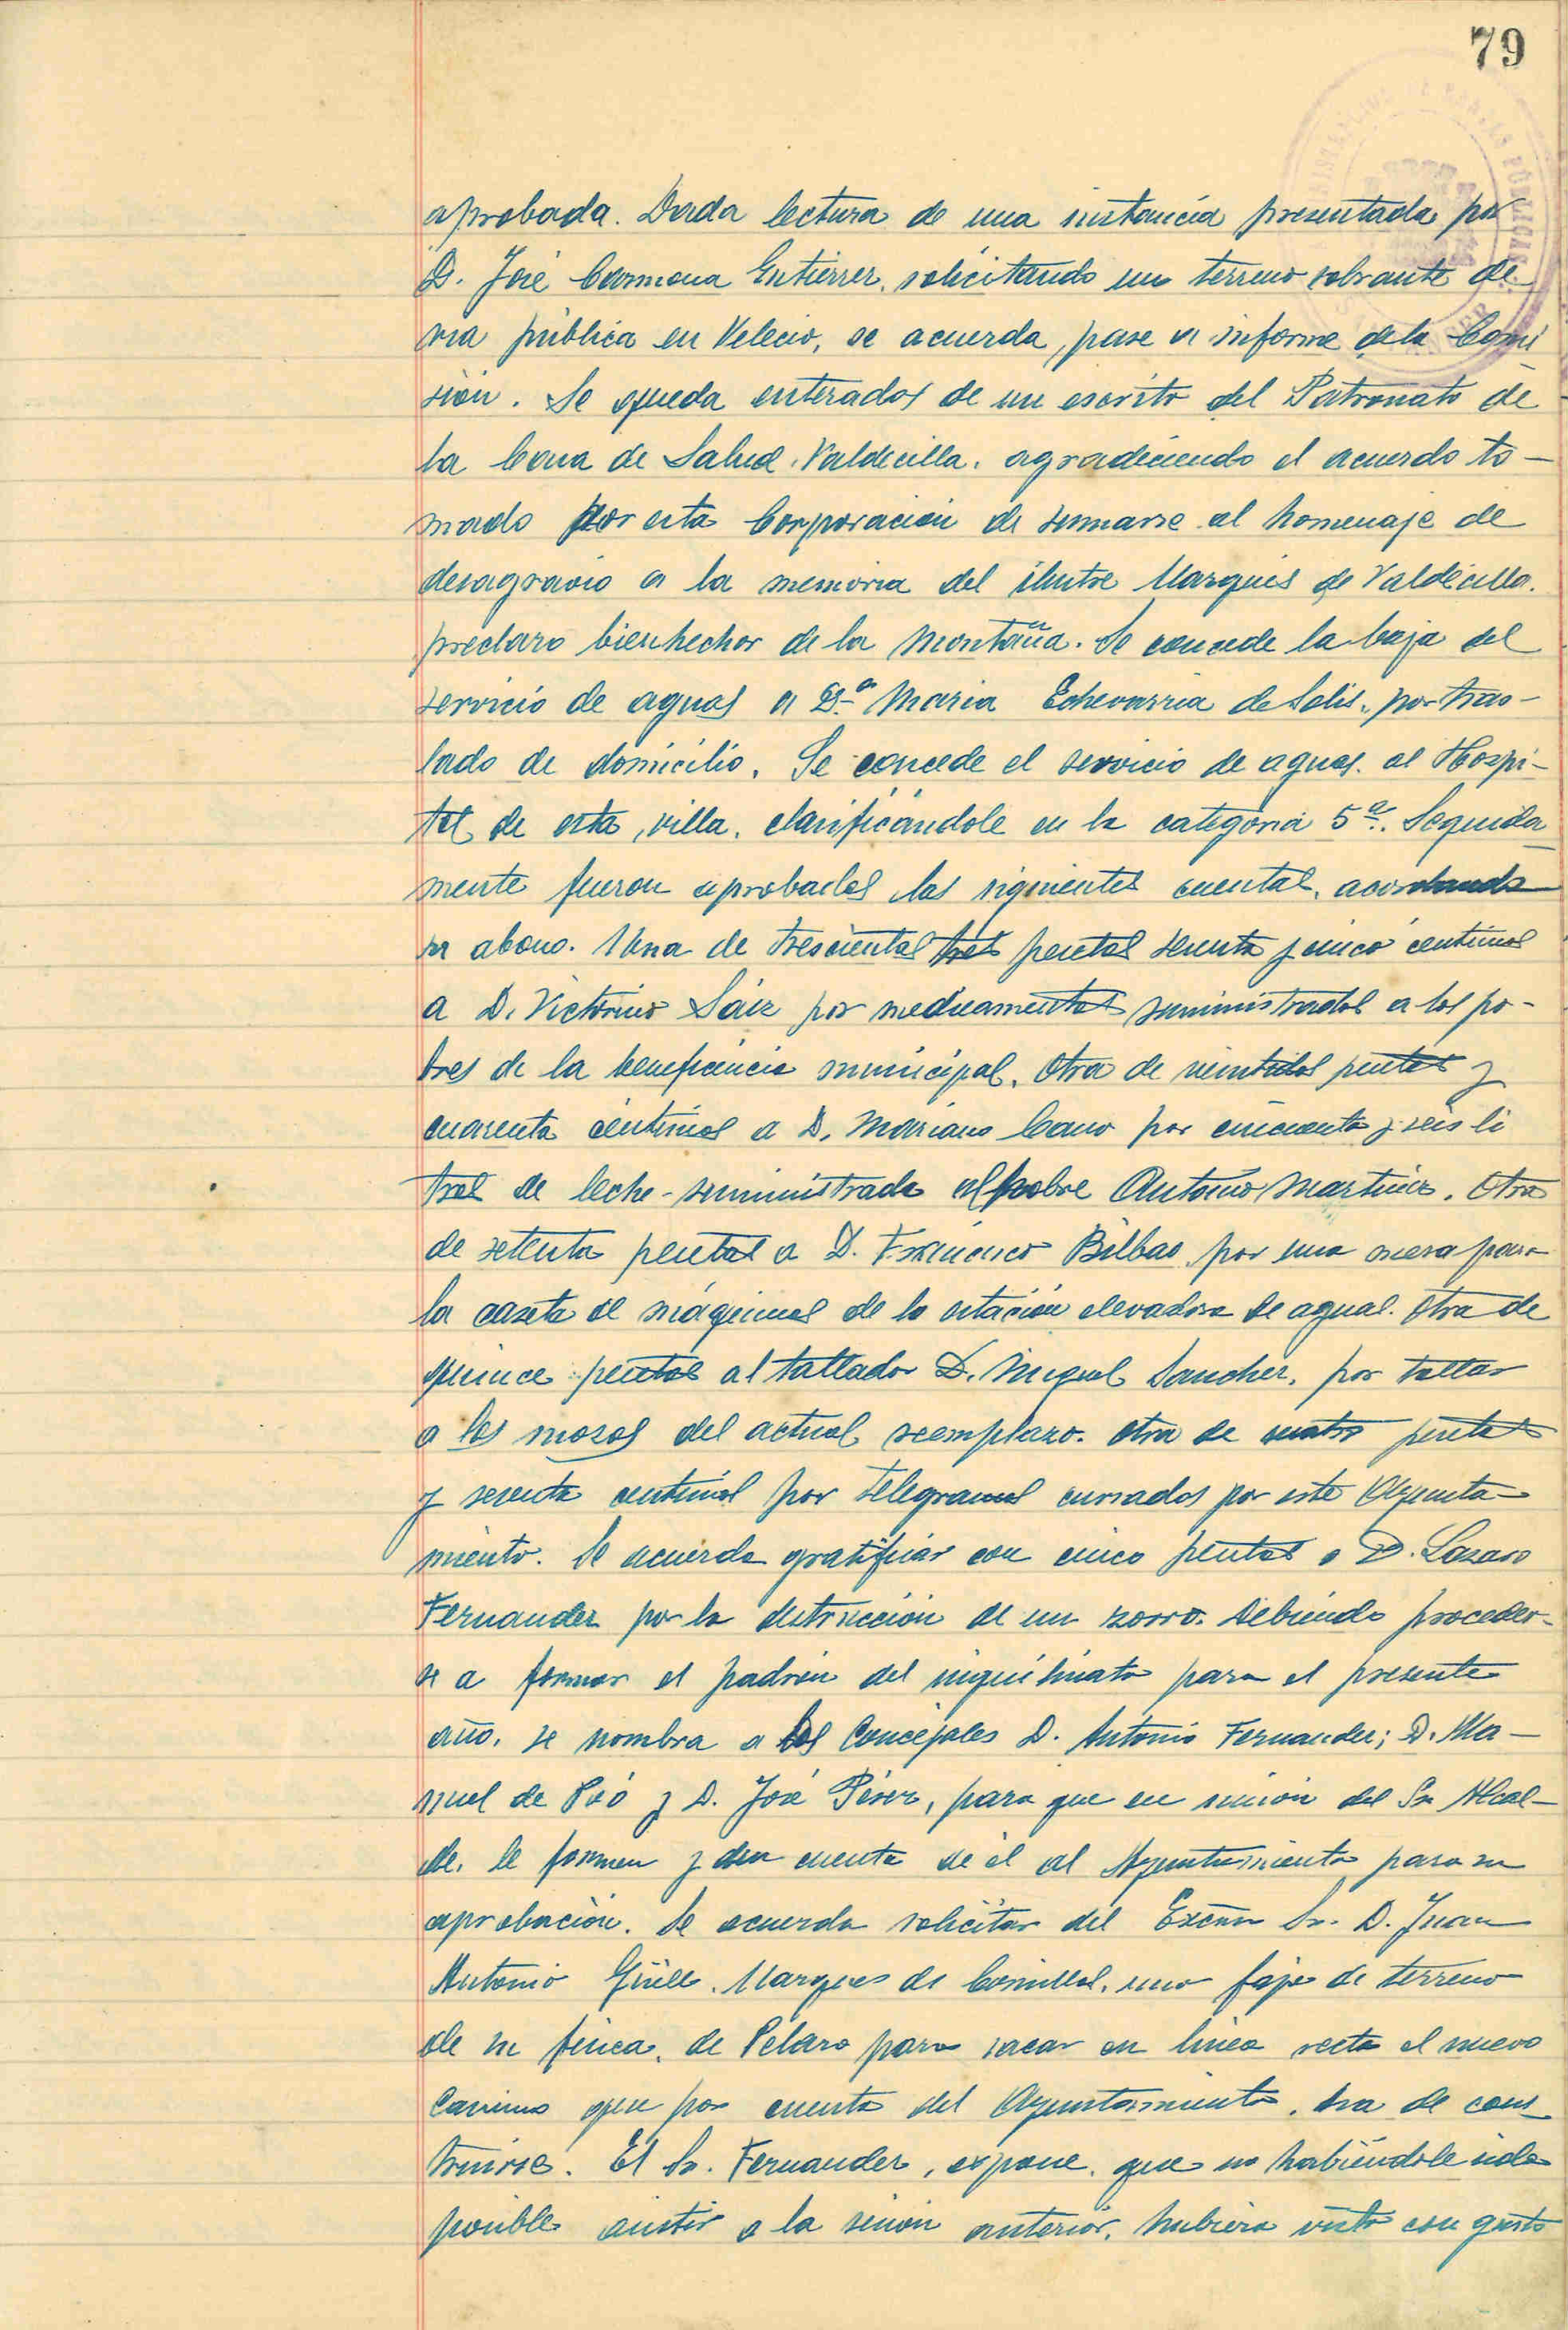 79
aprobada. Dada lectura de una instancia presentada por
D. José Carmona Gutiérrez, solicitando un terreno sobrante de
via pública en Velecio, se acuerda, pase a informe de la Comi
sión. Se queda enterados de un escrito del Patronato de
la Casa de Salud Valdecilla, agradeciendo el acuerdo to-
mado por esta Corporación de sumarse al homenaje de
desagravio a la memoria del ilustre Marqués de Valdecilla.
preclaro bienhechor de la Montaña. Se concede la baja del
servicio de aguas a Dª Maria Echevarria de Solis, por tras-
lado de domicilio. Se concede el servicio de aguas al Hospi-
tal de esta villa, clasificándole en la categoria 5ª. Seguida
mente fueron aprobadas las siguientes cuentas, acordando
su abono. Una de trescientas tres pesetas sesenta y cinco centimos
a D. Victorino Sáiz por medicamentos suministrados a los po-
bres de la beneficencia municipal. Otra de veintidos pesetas y
cuarenta céntimos a D. Mariano Cano por cincuenta y seis li
tros de leche suministrada al pobre Antonio Martinez. Otra
de setenta pesetas a D. Francisco Bilbao, por una mesa para
la caseta de máquinas de la estación elevadora de aguas. Otra de
quince pesetas al tallador D. Miguel Sanchez, por tallar
a los mozos del actual reemplazo. Otra de cuatro pesetas
y sesenta centimos por telegramas cursados por este Ayunta-
miento. Se acuerda gratificar con cinco pesetas a D. Lazaro
Fernandez por la destrucción de un zorro. Debiendo proceder-
se a formar el padrón del inquilinato para el presente
año, se nombra a los Concejales D. Antonio Fernandez; D. Ma-
nuel de Poó y D. José Pérez, para que en unión del Sr Alcal-
de, le formen y den cuenta de él al Ayuntamiento para su
aprobación. Se acuerda solicitar del Excmo Sr. D. Juan
Antonio Güell, Marques de Comillas, una faja de terreno
de su finca, de Peláro para sacar en linea recta el nuevo
Camino que por cuenta del Ayuntamiento, ha de cons
truirse. El Sr. Fernandez, expone, que no habiéndole sido
posible asistir a la sesión anterior, hubiera visto con gusto